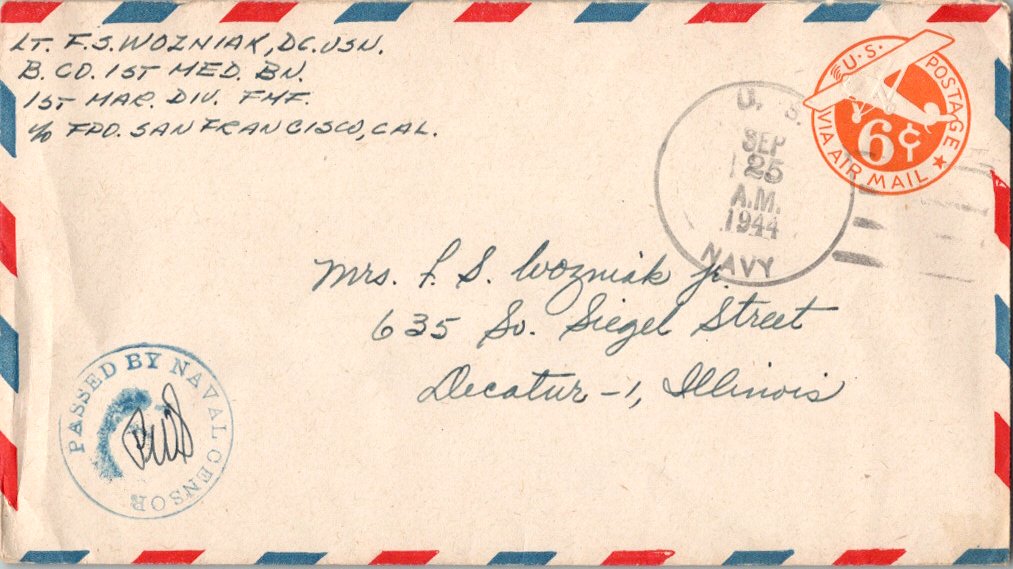 LT. F.S. WOZNIAK, DC. USN.
B. CO. 1ST MED. BN.
1ST MAR. DIV. FMF.
c/o FPO. SAN FRANCISCO, CAL.
U.S. POSTAGE
6¢
VIA AIR MAIL
U. S.
SEP
25
A.M.
1944
NAVY
Mrs. F. S. Wozniak Jr.
635 So. Siegel Street
Decatur-1, Illinois
PASSED BY NAVAL CENSOR